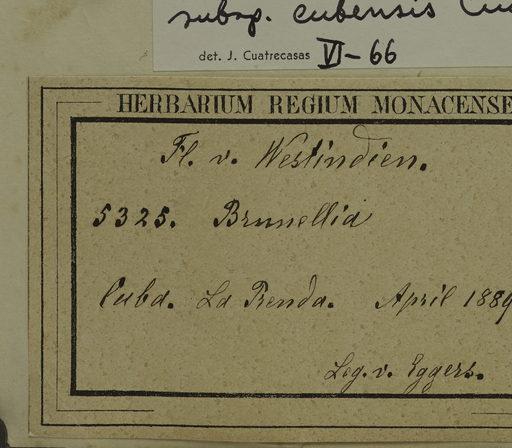 subsp. cubensis Cu
det. J. Cuatrecasas VI-66
HERBARIUM REGIUM MONACENSE
Fl. v. Westindien.
5325. Brunellia
Cuba. La Prenda. April 1889
Leg. v. Eggers.